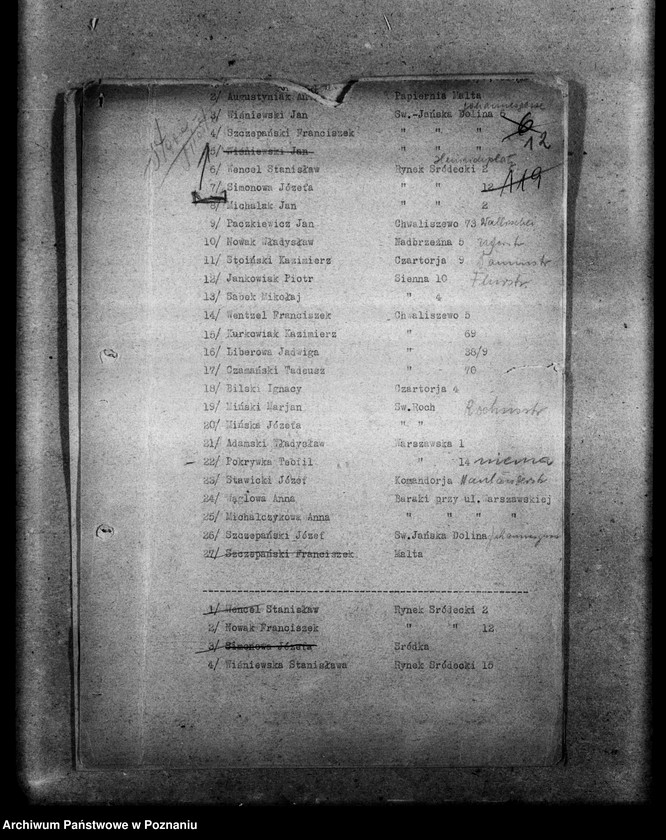 2/ Augustyniak Anna Papiernia Malta
3/ Wiśniewski Jan Św.-Jońska Dolina 6 Johannesgasse
4/ Szczepański Franciszek " " " 6 12
5/ Wiśniewski Jan " " "
6/ Wencel Stanisław Rynek Śródecki 2
7/ Simonowa Józefa " " 12 A19
8/ Michalak Jan " " 2
9/ Paczkiewicz Jan Chwaliszewo 73 Wallischei
10/ Nowak Władysław Nadbrzeżna 5
11/ Stoiński Kazimierz Czartorja 9
12/ Jankowiak Piotr Sienna 10
13/ Sabek Mikołaj " 4
14/ Wentzel Franciszek Chwaliszewo 5
15/ Kurkowiak Kazimierz " 69
16/ Liberowa Jadwiga " 38/9
17/ Czamański Tadeusz " 76
18/ Bilski Ignacy Czartorja 4
19/ Miński Marjan Św.Roch Rochusstr
20/ Mińska Józefa " "
21/ Adamski Władysław Warszawska 1
22/ Pokrywka Teofil " 14 niema
23/ Stawicki Józef Komandorja
24/ Węglowa Anna Baraki przy ul. Warszawskiej
25/ Michalczykowa Anna " " " "
26/ Szczepański Józef Św.Jańska Dolina
27/ Szczepański Franciszek Malta
1/ Wencel Stanisław Rynek Śródecki 2
2/ Nowak Franciszek " " 12
3/ Simonowa Józefa Śródka
4/ Wiśniewska Stanisława Rynek Śródecki 15
Archiwum Państwowe w Poznaniu